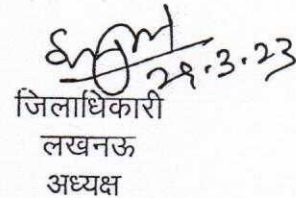 29.3.23
जिलाधिकारी
लखनऊ
अध्यक्ष